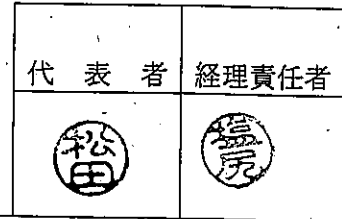 代表者 経理責任者
松田 塩尻